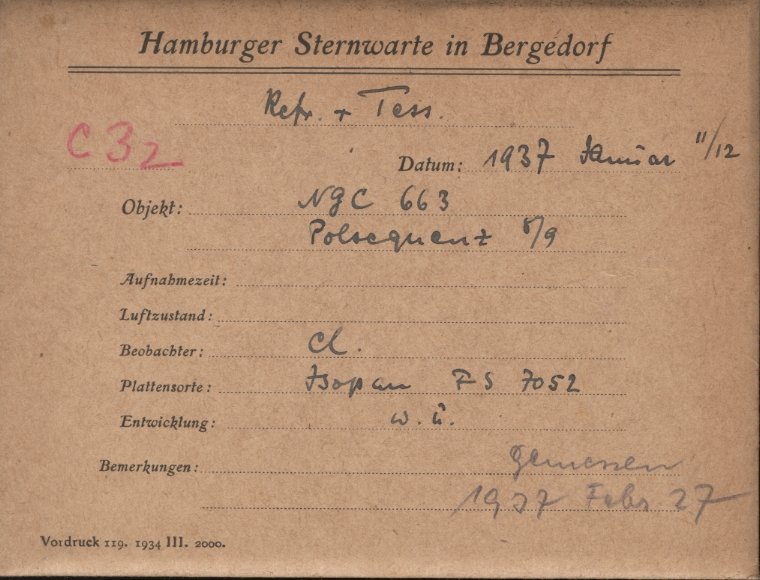 Hamburger Sternwarte in Bergedorf
Refr. + Tess.
C 32
Datum: 1937 Januar 11/12
Objekt: NGC 663
Polsequenz 8/9
Aufnahmezeit:
Luftzustand:
Beobachter: Cl.
Plattensorte: Isopan FS 7052
Entwicklung: w. ü.
Bemerkungen: gemessen
1937 Febr 27
Vordruck 119. 1934 III. 2000.